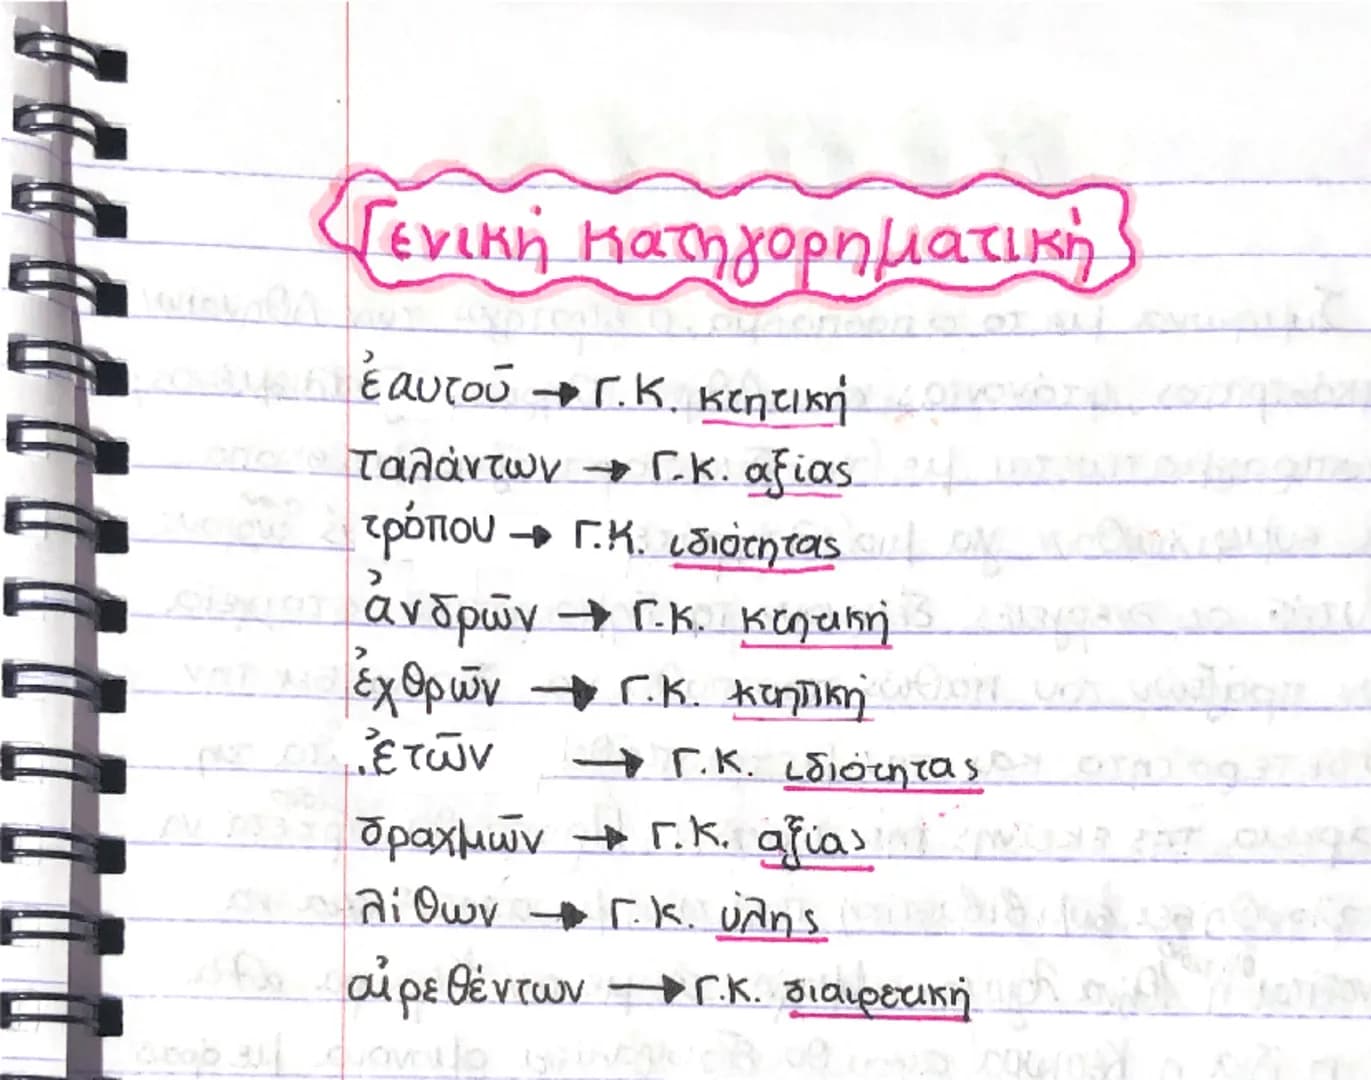 Γενική κατηγορηματική
ἐαυτοῦ → Γ.Κ. κτητική
ταλάντων → Γ.Κ. αξίας
τρόπου → Γ.Κ. ιδιότητας
ἀνδρῶν → Γ.Κ. κτητική
ἐχθρῶν → Γ.Κ. κτητική
ἐτῶν → Γ.Κ. ιδιότητας
δραχμῶν → Γ.Κ. αξίας
λίθων → Γ.Κ. ύλης
αἱρεθέντων → Γ.Κ. διαιρετική